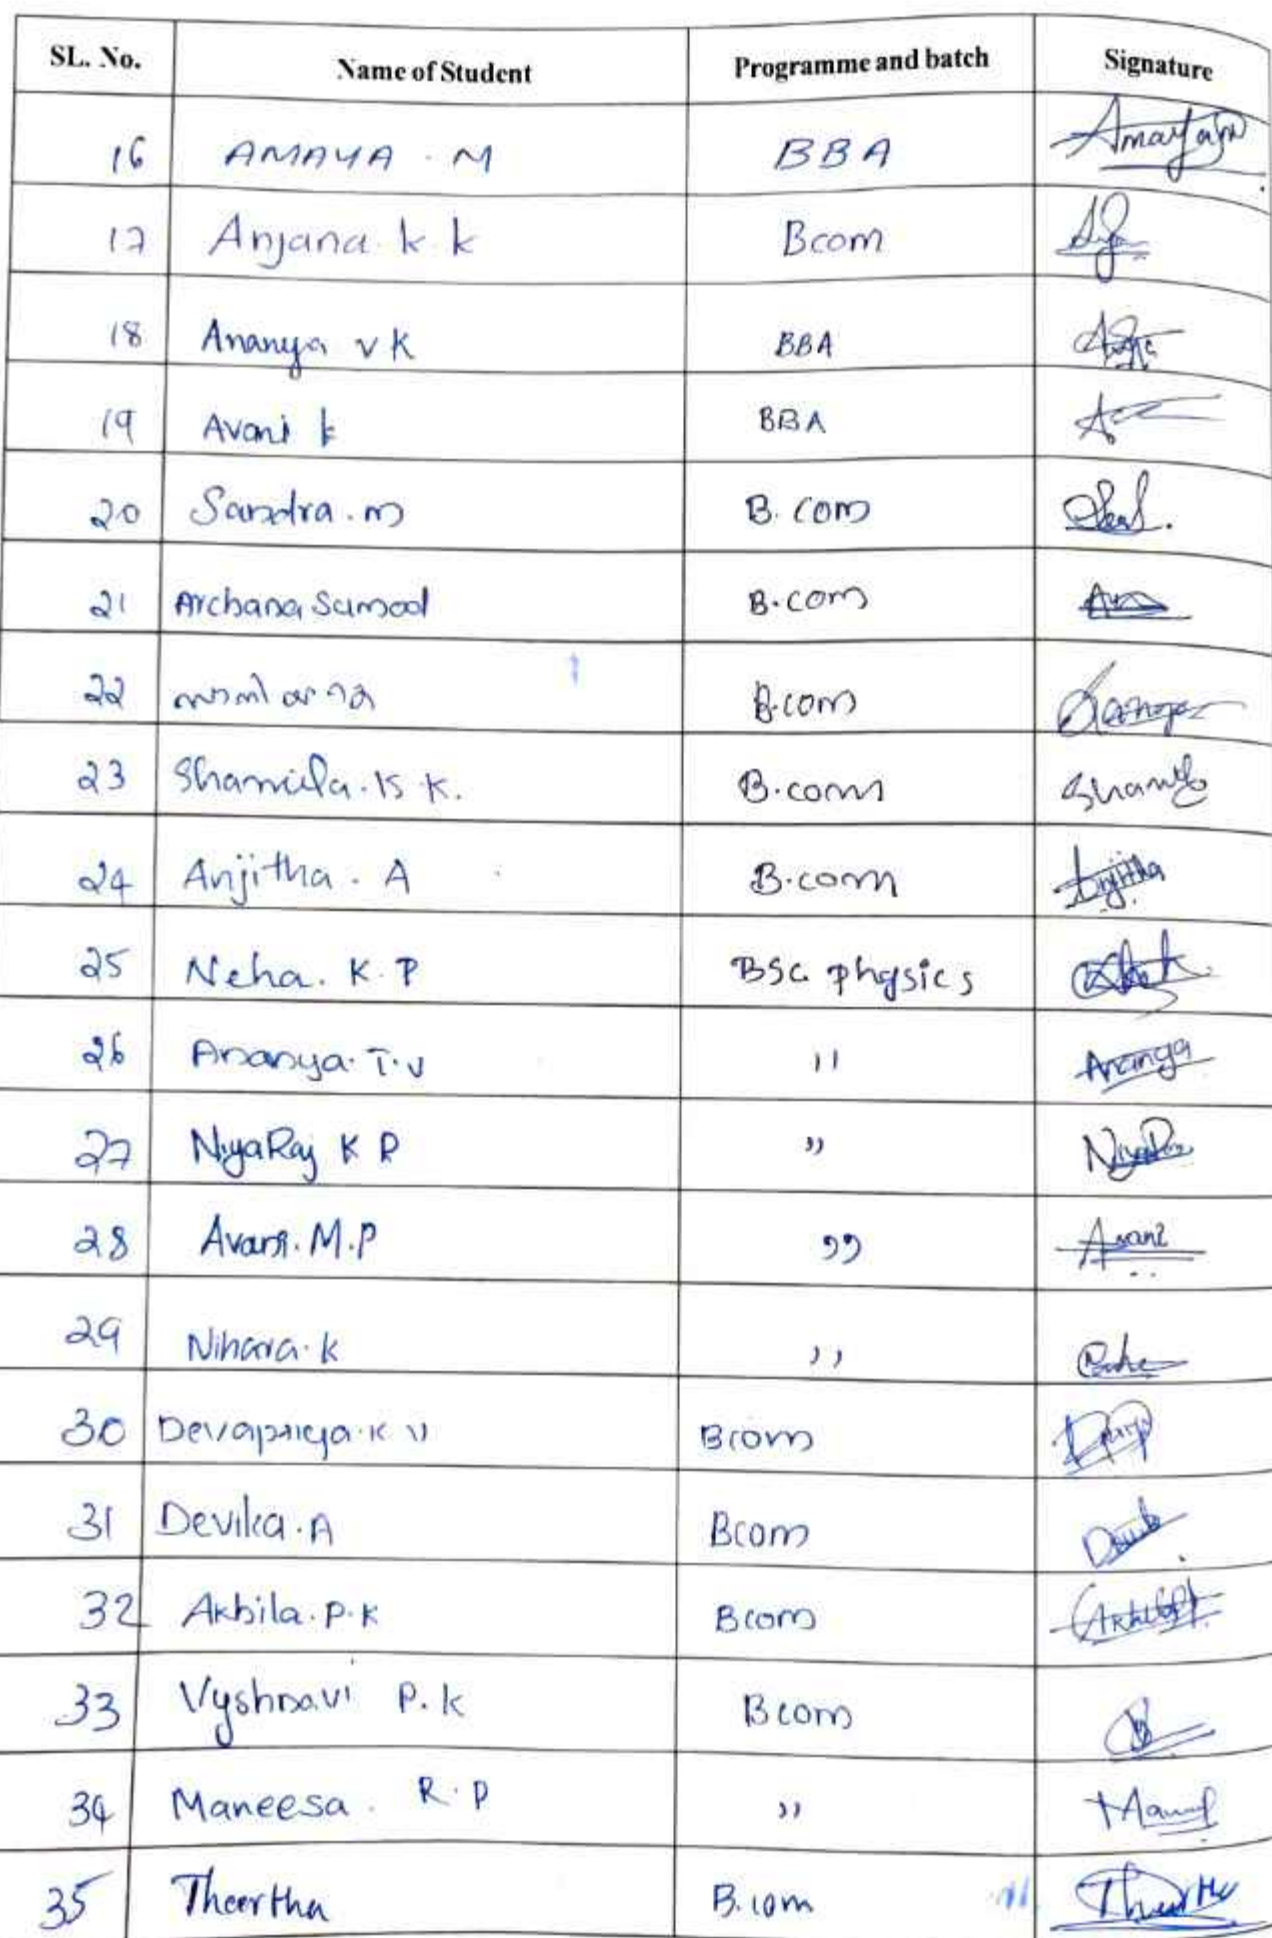 SL. No. Name of Student Programme and batch Signature
16 AMAYA . M BBA Amaya
17 Anjana. k. k Bcom
18 Ananya v K BBA
19 Avani k BBA
20 Sandra. m B. com
21 Archana Sumod B.com
22 B.com
23 Shamila. K K. B.com Shamila
24 Anjitha. A B.com Anjitha
25 Neha. K. P BSc physics
26 Ananya. T. V ,, Ananya
27 NiyaRaj K P ,, NiyaRaj
28 Avani. M.P ,, Avani
29 Nihara. k ,,
30 Devapriya. K V Bcom
31 Devika. A Bcom Devika
32 Akhila. P. K Bcom
33 Vyshnavi P. k Bcom
34 Maneesa. R. P ,,
35 Theertha B.com Theertha